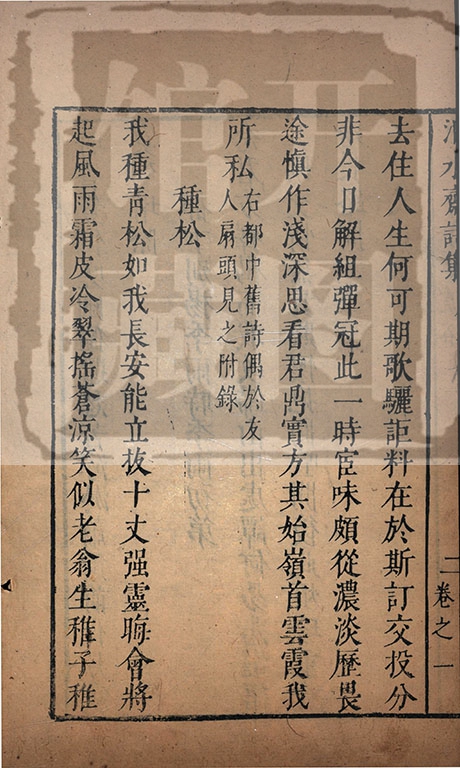 去住人生何可期歌驪詎料在於斯訂交投分
非今日解組彈冠此一時宦味頗從濃淡歷畏
途慎作淺深思看君鼎實方其始嶺首雲霞我
所私右都中舊詩偶於友
人扇頭見之附錄
種松
我種青松如我長安能立拔十丈强靈晦會將
起風雨霜皮冷翠搖蒼涼笑似老翁生稚子稚
水齋詩集
二
卷之一